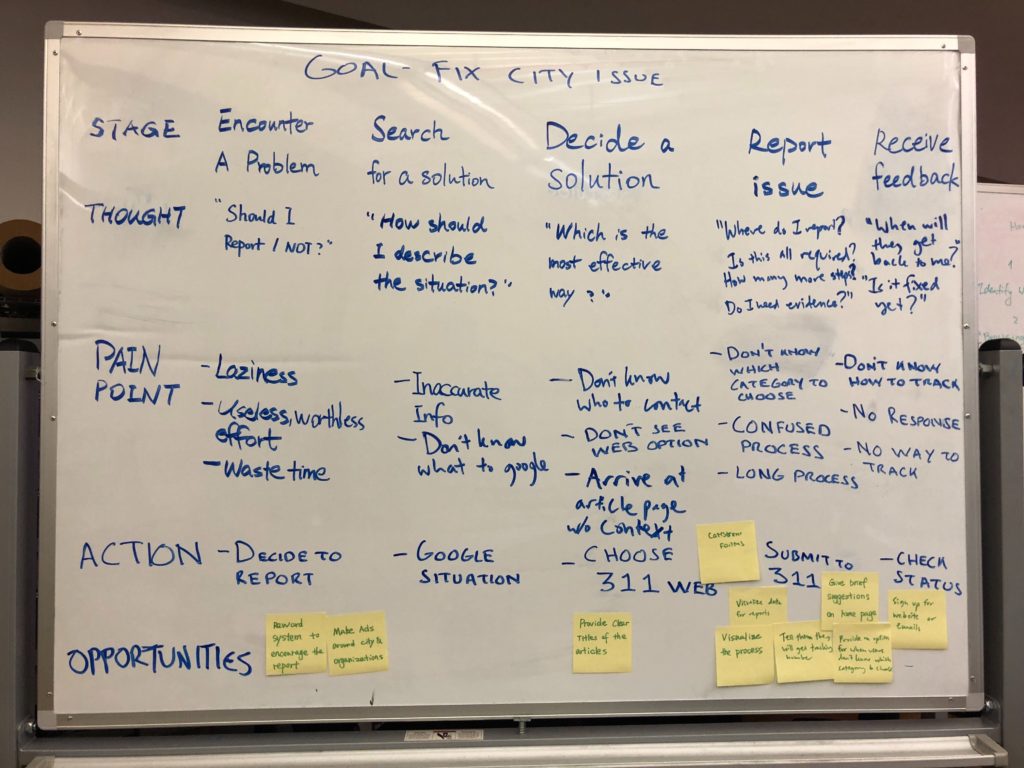 GOAL - FIX CITY ISSUE
STAGE
Encounter
A Problem
Search
for a solution
Decide a
solution
Report
issue
Receive
feedback
THOUGHT
"Should I
Report / NOT?"
"How should
I describe
the situation?"
"Which is the
most effective
way?"
"Where do I report?
Is this all required?
How many more steps?
Do I need evidence?"
"When will
they get
back to me?"
"Is it fixed
yet?"
PAIN
POINT
- Laziness
- Useless, worthless
effort
- Waste time
- Inaccurate
Info
- Don't know
what to google
- Don't know
who to contact
- DON'T SEE
WEB OPTION
- Arrive at
article page
w/o context
- DON'T KNOW
WHICH
CATEGORY TO
CHOOSE
- CONFUSED
PROCESS
- LONG PROCESS
- DON'T KNOW
HOW TO TRACK
- NO RESPONSE
- NO WAY TO
TRACK
ACTION
- DECIDE TO
REPORT
- GOOGLE
SITUATION
- CHOOSE
311 WEB
SUBMIT TO
311
- CHECK
STATUS
OPPORTUNITIES
Reward
system to
encourage the
report
Make Ads
around city &
organizations
Provide Clear
Titles of the
articles
Consistent
Forms
Visualize data
for reports
Visualize
the process
Tell them they
will get tracking
number
Give brief
suggestions
on home page
Provide an option
for when users
don't know which
category to choose
Sign up for
website or
emails
Identify
1
2